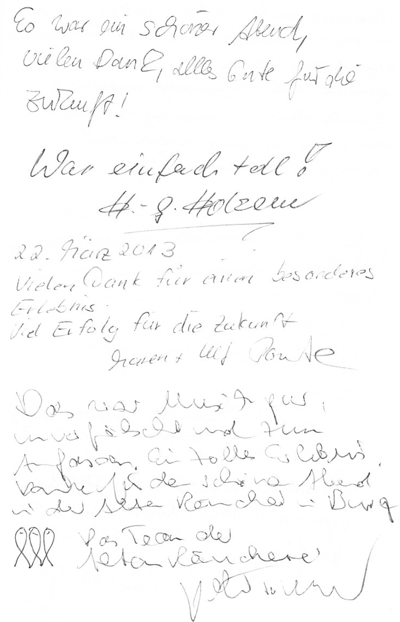 Es war ein schöner Abend,
vielen Dank, alles Gute für die
Zukunft!
War einfach toll!
H.-J. Holzem
22. März 2013
Vielen Dank für einen besonderes
Erlebnis.
Viel Erfolg für die Zukunft
Maren + Ulf
Das war Musik pur,
unverfälscht und zum
Anfassen. Ein tolles Erlebnis.
Danke für den schönen Abend
in der Alten Räucherei in Burg
Das Team der
Alten Räucherei